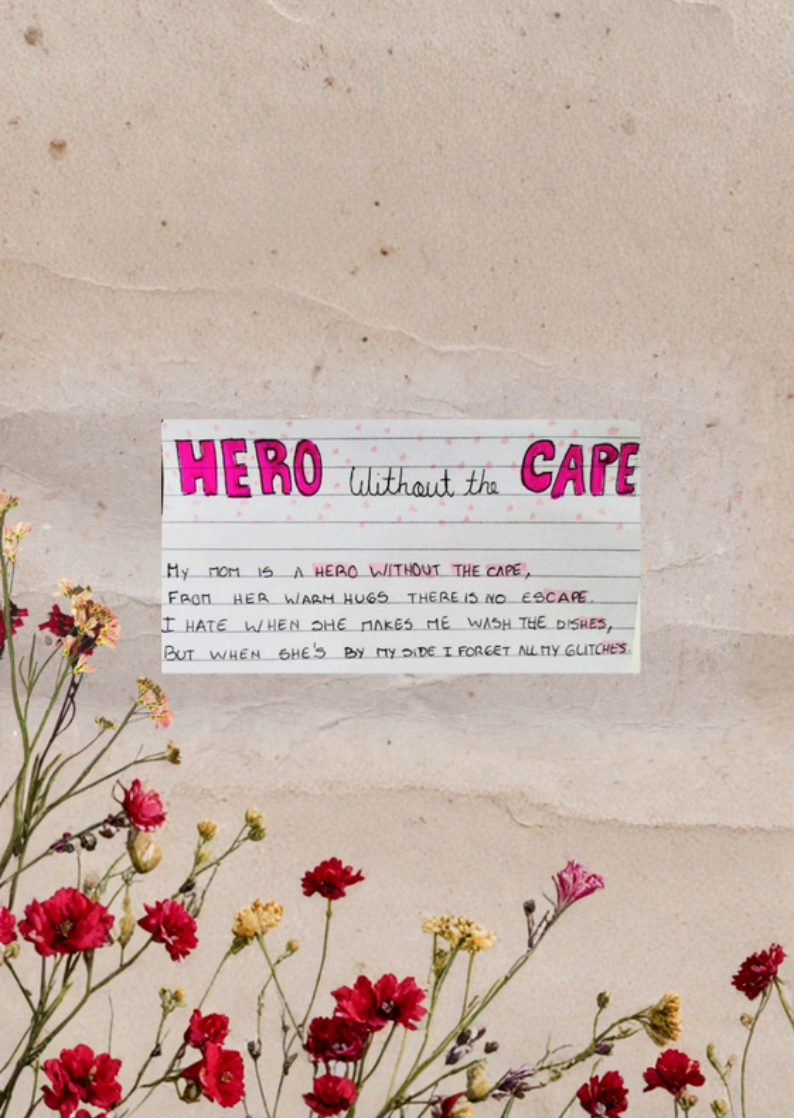 HERO Without the CAPE
MY MOM IS A HERO WITHOUT THE CAPE,
FROM HER WARM HUGS THERE IS NO ESCAPE.
I HATE WHEN SHE MAKES ME WASH THE DISHES,
BUT WHEN SHE'S BY MY SIDE I FORGET ALL MY GLITCHES.